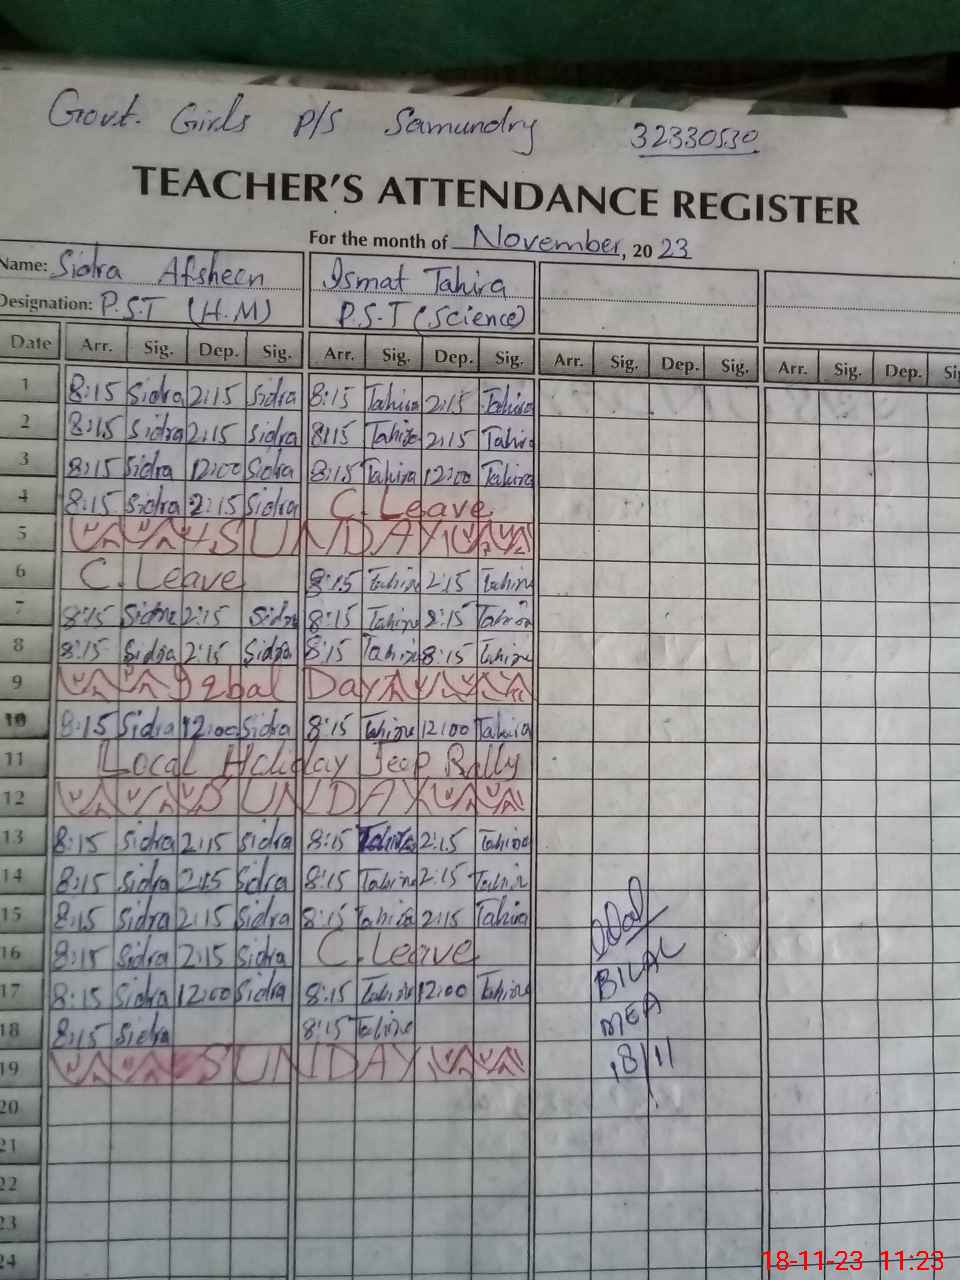 Govt. Girls P/S Samundry 32330530
TEACHER'S ATTENDANCE REGISTER
For the month of November, 20 23
Name: Sidra Afsheen Ismat Tahira
Designation: P.S.T (H.M) P.S.T (Science)
Date Arr. Sig. Dep. Sig. Arr. Sig. Dep. Sig. Arr. Sig. Dep. Sig. Arr. Sig. Dep.
1 8:15 Sidra 2:15 Sidra 8:15 Tahira 2:15 Tahira
2 8:15 Sidra 2:15 Sidra 8:15 Tahira 2:15 Tahira
3 8:15 Sidra 12:00 Sidra 8:15 Tahira 12:00 Tahira
4 8:15 Sidra 2:15 Sidra C. Leave
5 SUNDAY
6 C. Leave 8:15 Tahira 2:15 Tahira
7 8:15 Sidra 2:15 Sidra 8:15 Tahira 2:15 Tahira
8 8:15 Sidra 2:15 Sidra 8:15 Tahira 8:15 Tahira
9 Iqbal Day
10 8:15 Sidra 12:00 Sidra 8:15 Tahira 12:00 Tahira
11 Local Holiday Jeep Rally
12 SUNDAY
13 8:15 Sidra 2:15 Sidra 8:15 Tahira 2:15 Tahira
14 8:15 Sidra 2:15 Sidra 8:15 Tahira 2:15 Tahira
15 8:15 Sidra 2:15 Sidra 8:15 Tahira 2:15 Tahira
16 8:15 Sidra 2:15 Sidra C. Leave
BILAL
17 8:15 Sidra 12:00 Sidra 8:15 Tahira 12:00 Tahira
MEA
18 8:15 Sidra 8:15 Tahira
18/11
19 SUNDAY
20
21
22
23
24
18-11-23 11:23